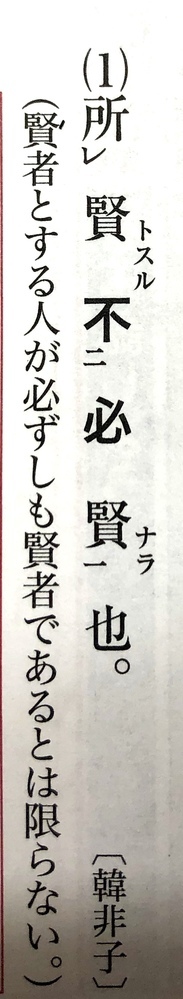 (1)所レ賢トスル不二必賢ナラ一也。〔韓非子〕
(賢者とする人が必ずしも賢者であるとは限らない。)